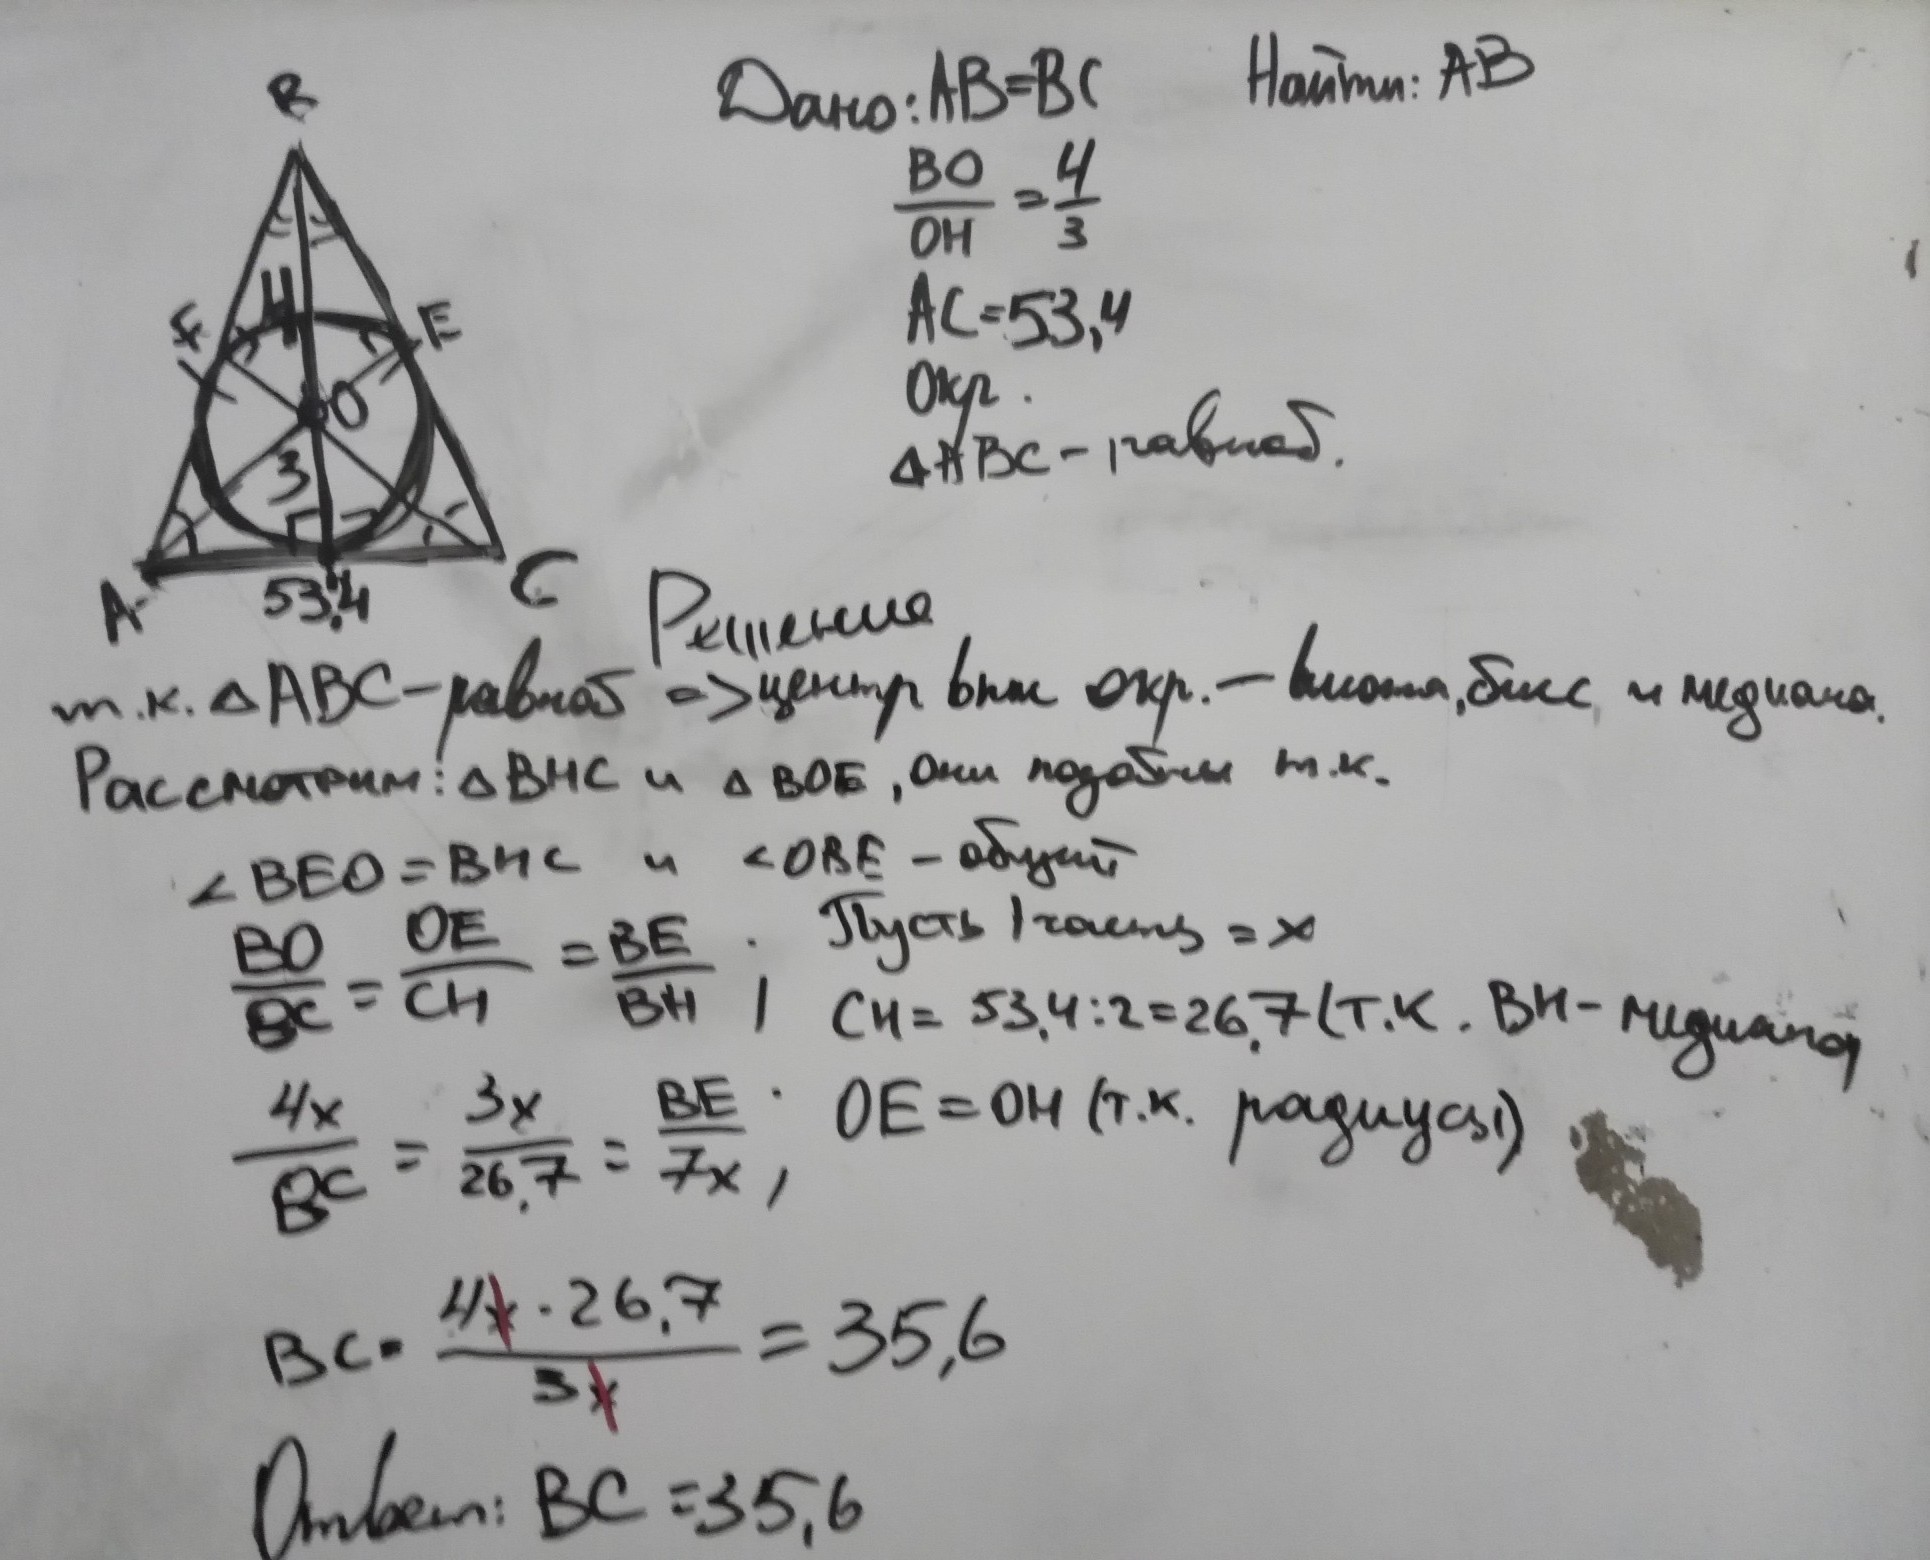 B
Дано: AB=BC Найти: AB
BO/OH = 4/3
4
F E
AC=53,4
O
Окр.
3
△ABC - равноб.
A 53,4 C
Решение
т.к. △ABC-равноб => центр впис окр. - высота, бисс и медиана.
Рассмотрим: △BHC и △BOE, они подобны т.к.
∠BEO = BHC и ∠OBE - общий
BO/BC = OE/CH = BE/BH ; Пусть 1 часть = x
CH = 53,4:2=26,7 (т.к. BH- медиана)
4x/BC = 3x/26,7 = BE/7x ; OE = OH (т.к. радиусы)
BC = 4x · 26,7 / 3x = 35,6
Ответ: BC = 35,6